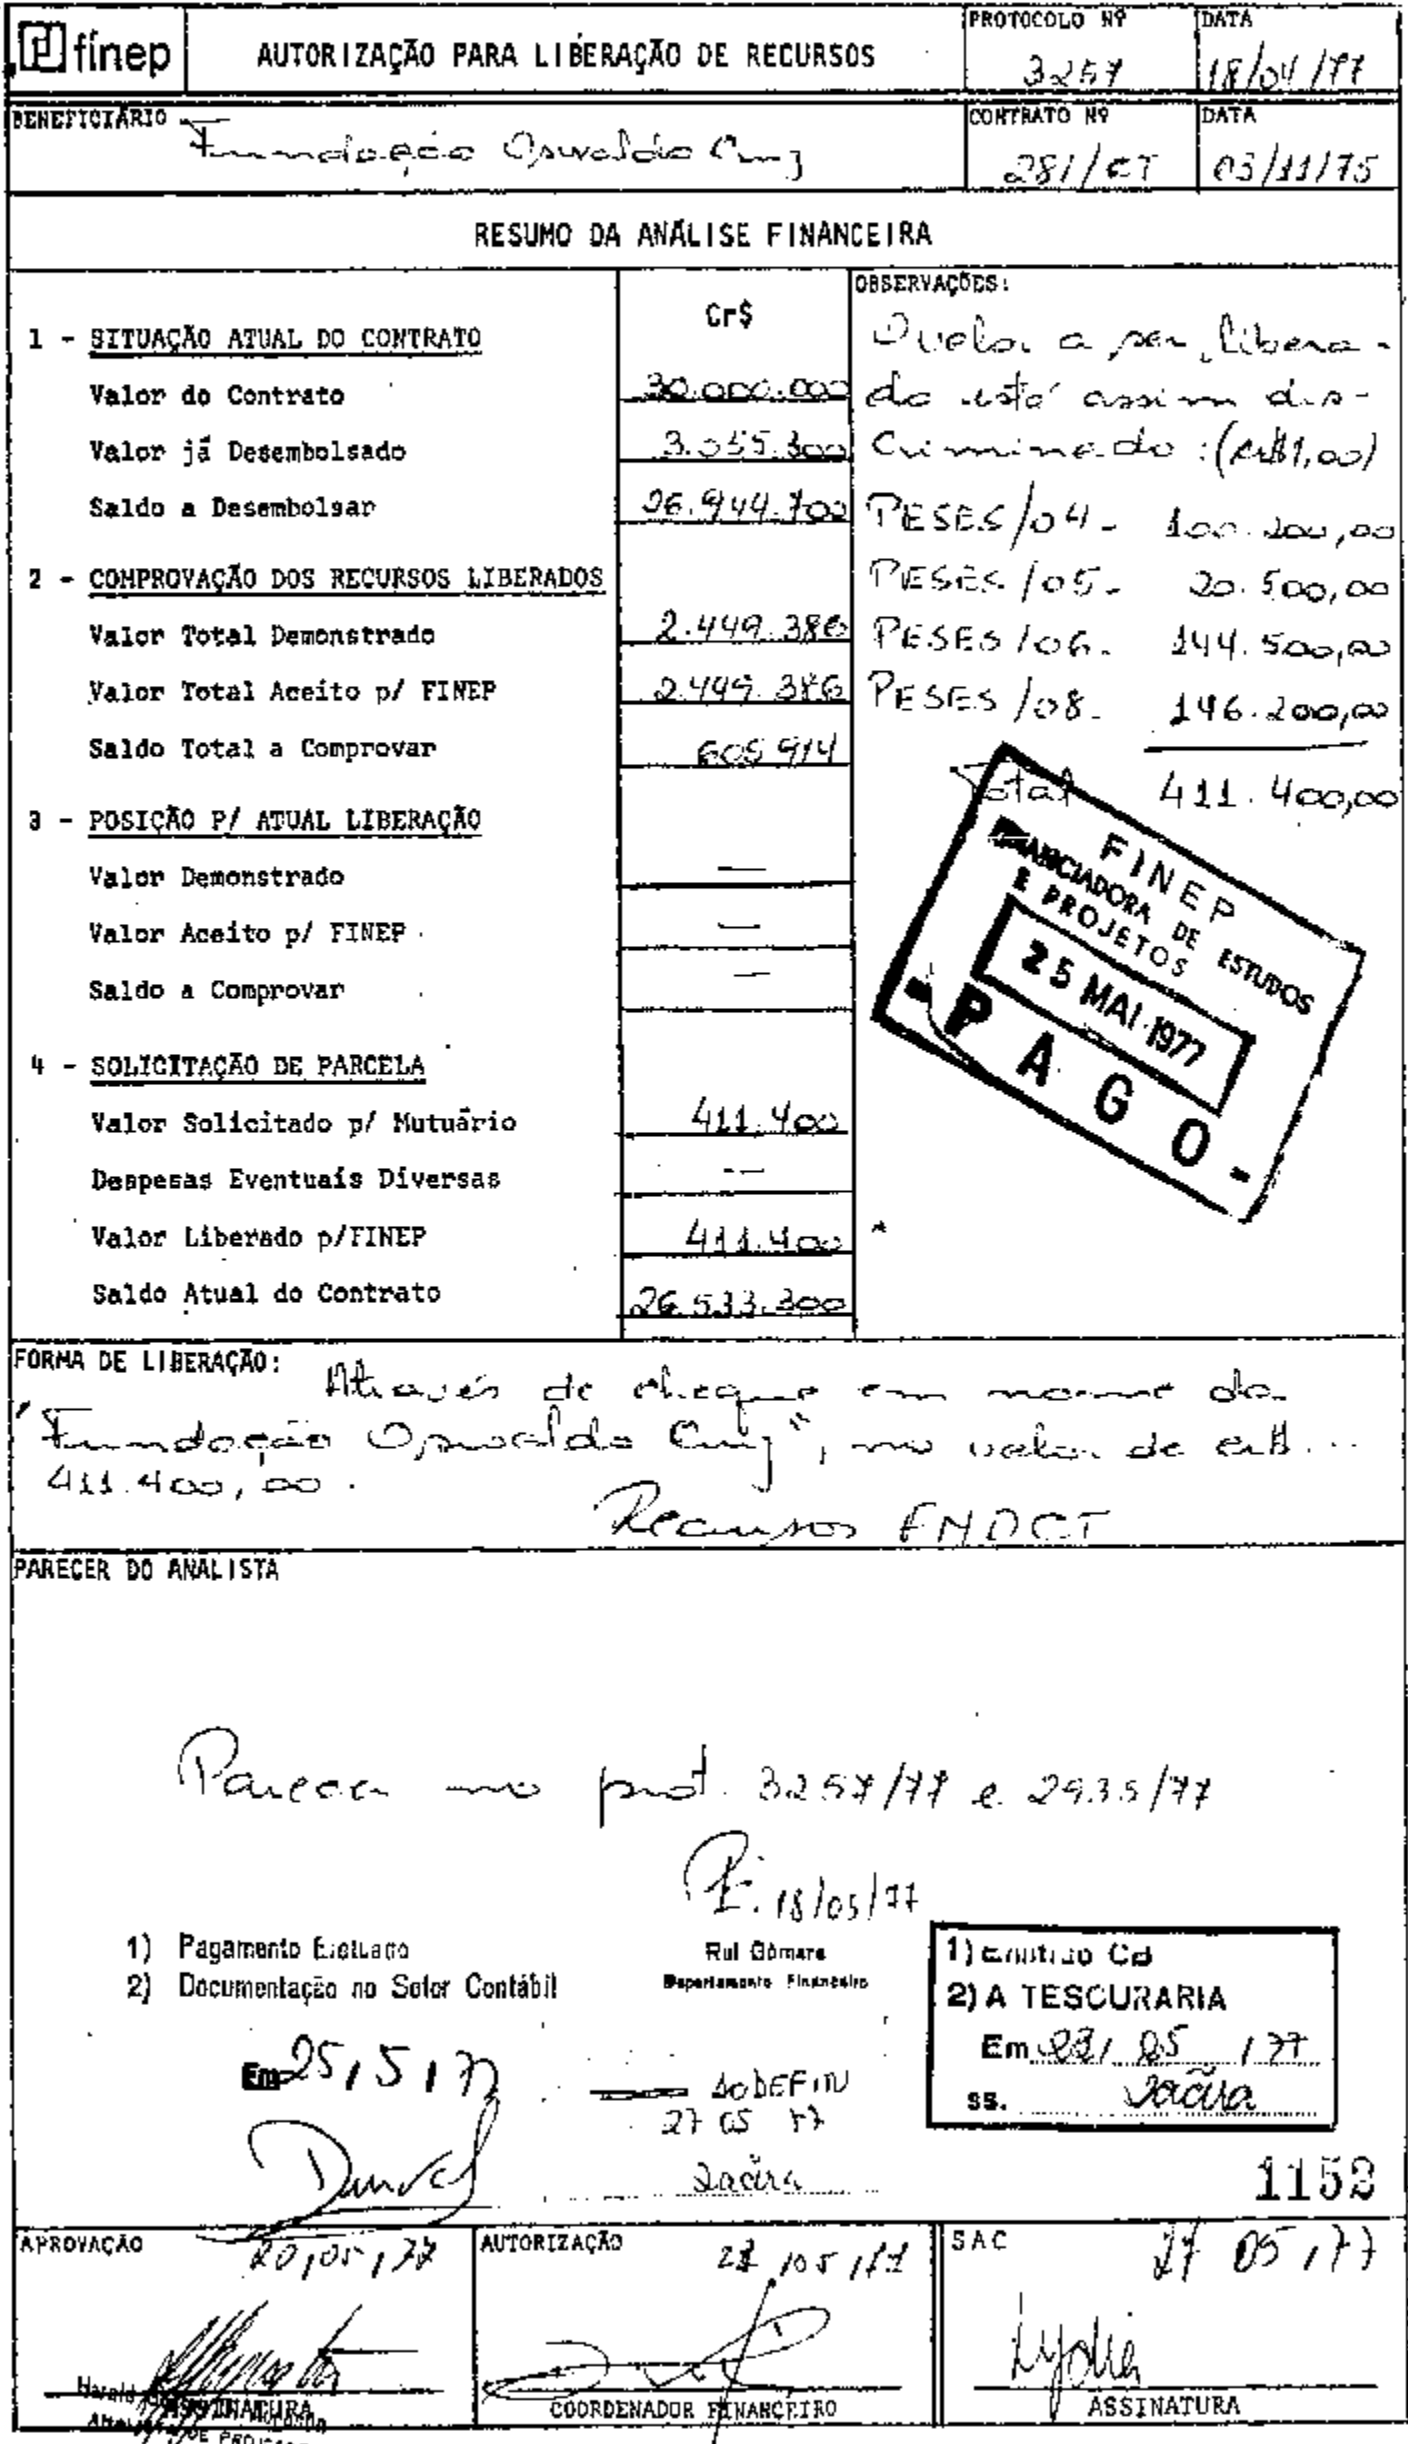 finep
AUTORIZAÇÃO PARA LIBERAÇÃO DE RECURSOS
PROTOCOLO Nº
3257
DATA
18/04/77
BENEFICIÁRIO
Fundação Oswaldo Cruz
CONTRATO Nº
281/CT
DATA
03/11/75
RESUMO DA ANÁLISE FINANCEIRA
Cr$
1 - SITUAÇÃO ATUAL DO CONTRATO
Valor do Contrato 30.000.000
Valor já Desembolsado 3.055.300
Saldo a Desembolsar 26.944.700
2 - COMPROVAÇÃO DOS RECURSOS LIBERADOS
Valor Total Demonstrado 2.449.386
Valor Total Aceito p/ FINEP 2.449.386
Saldo Total a Comprovar 605.914
3 - POSIÇÃO P/ ATUAL LIBERAÇÃO
Valor Demonstrado —
Valor Aceito p/ FINEP —
Saldo a Comprovar —
4 - SOLICITAÇÃO DE PARCELA
Valor Solicitado p/ Mutuário 411.400
Despesas Eventuais Diversas —
Valor Liberado p/FINEP 411.400
Saldo Atual do Contrato 26.533.300
OBSERVAÇÕES:
O valor a ser libera-
do está assim dis-
criminado: (Cr$1,00)
PESES/04- 100.200,00
PESES/05- 20.500,00
PESES/06- 144.500,00
PESES/08- 146.200,00
Total 411.400,00
FINEP
FINANCIADORA DE ESTUDOS
E PROJETOS
25 MAI 1977
- PAGO -
FORMA DE LIBERAÇÃO:
Através de cheque em nome da
"Fundação Oswaldo Cruz", no valor de Cr$...
411.400,00.
Recursos FNDCT
PARECER DO ANALISTA
Parecer no prot. 3257/77 e 2935/77
18/05/77
Rui Gomara
Departamento Financeiro
1) Pagamento Efetuado
2) Documentação no Setor Contábil
Em 25/5/77
Durval
AO DEFIN
27 05 77
Jacira
1) Emitido Ch
2) A TESOURARIA
Em 23/05/77
ss. Jacira
1152
APROVAÇÃO
20/05/77
ASSINATURA
AUTORIZAÇÃO
/05/77
COORDENADOR FINANCEIRO
SAC
27 05/77
Lydia
ASSINATURA